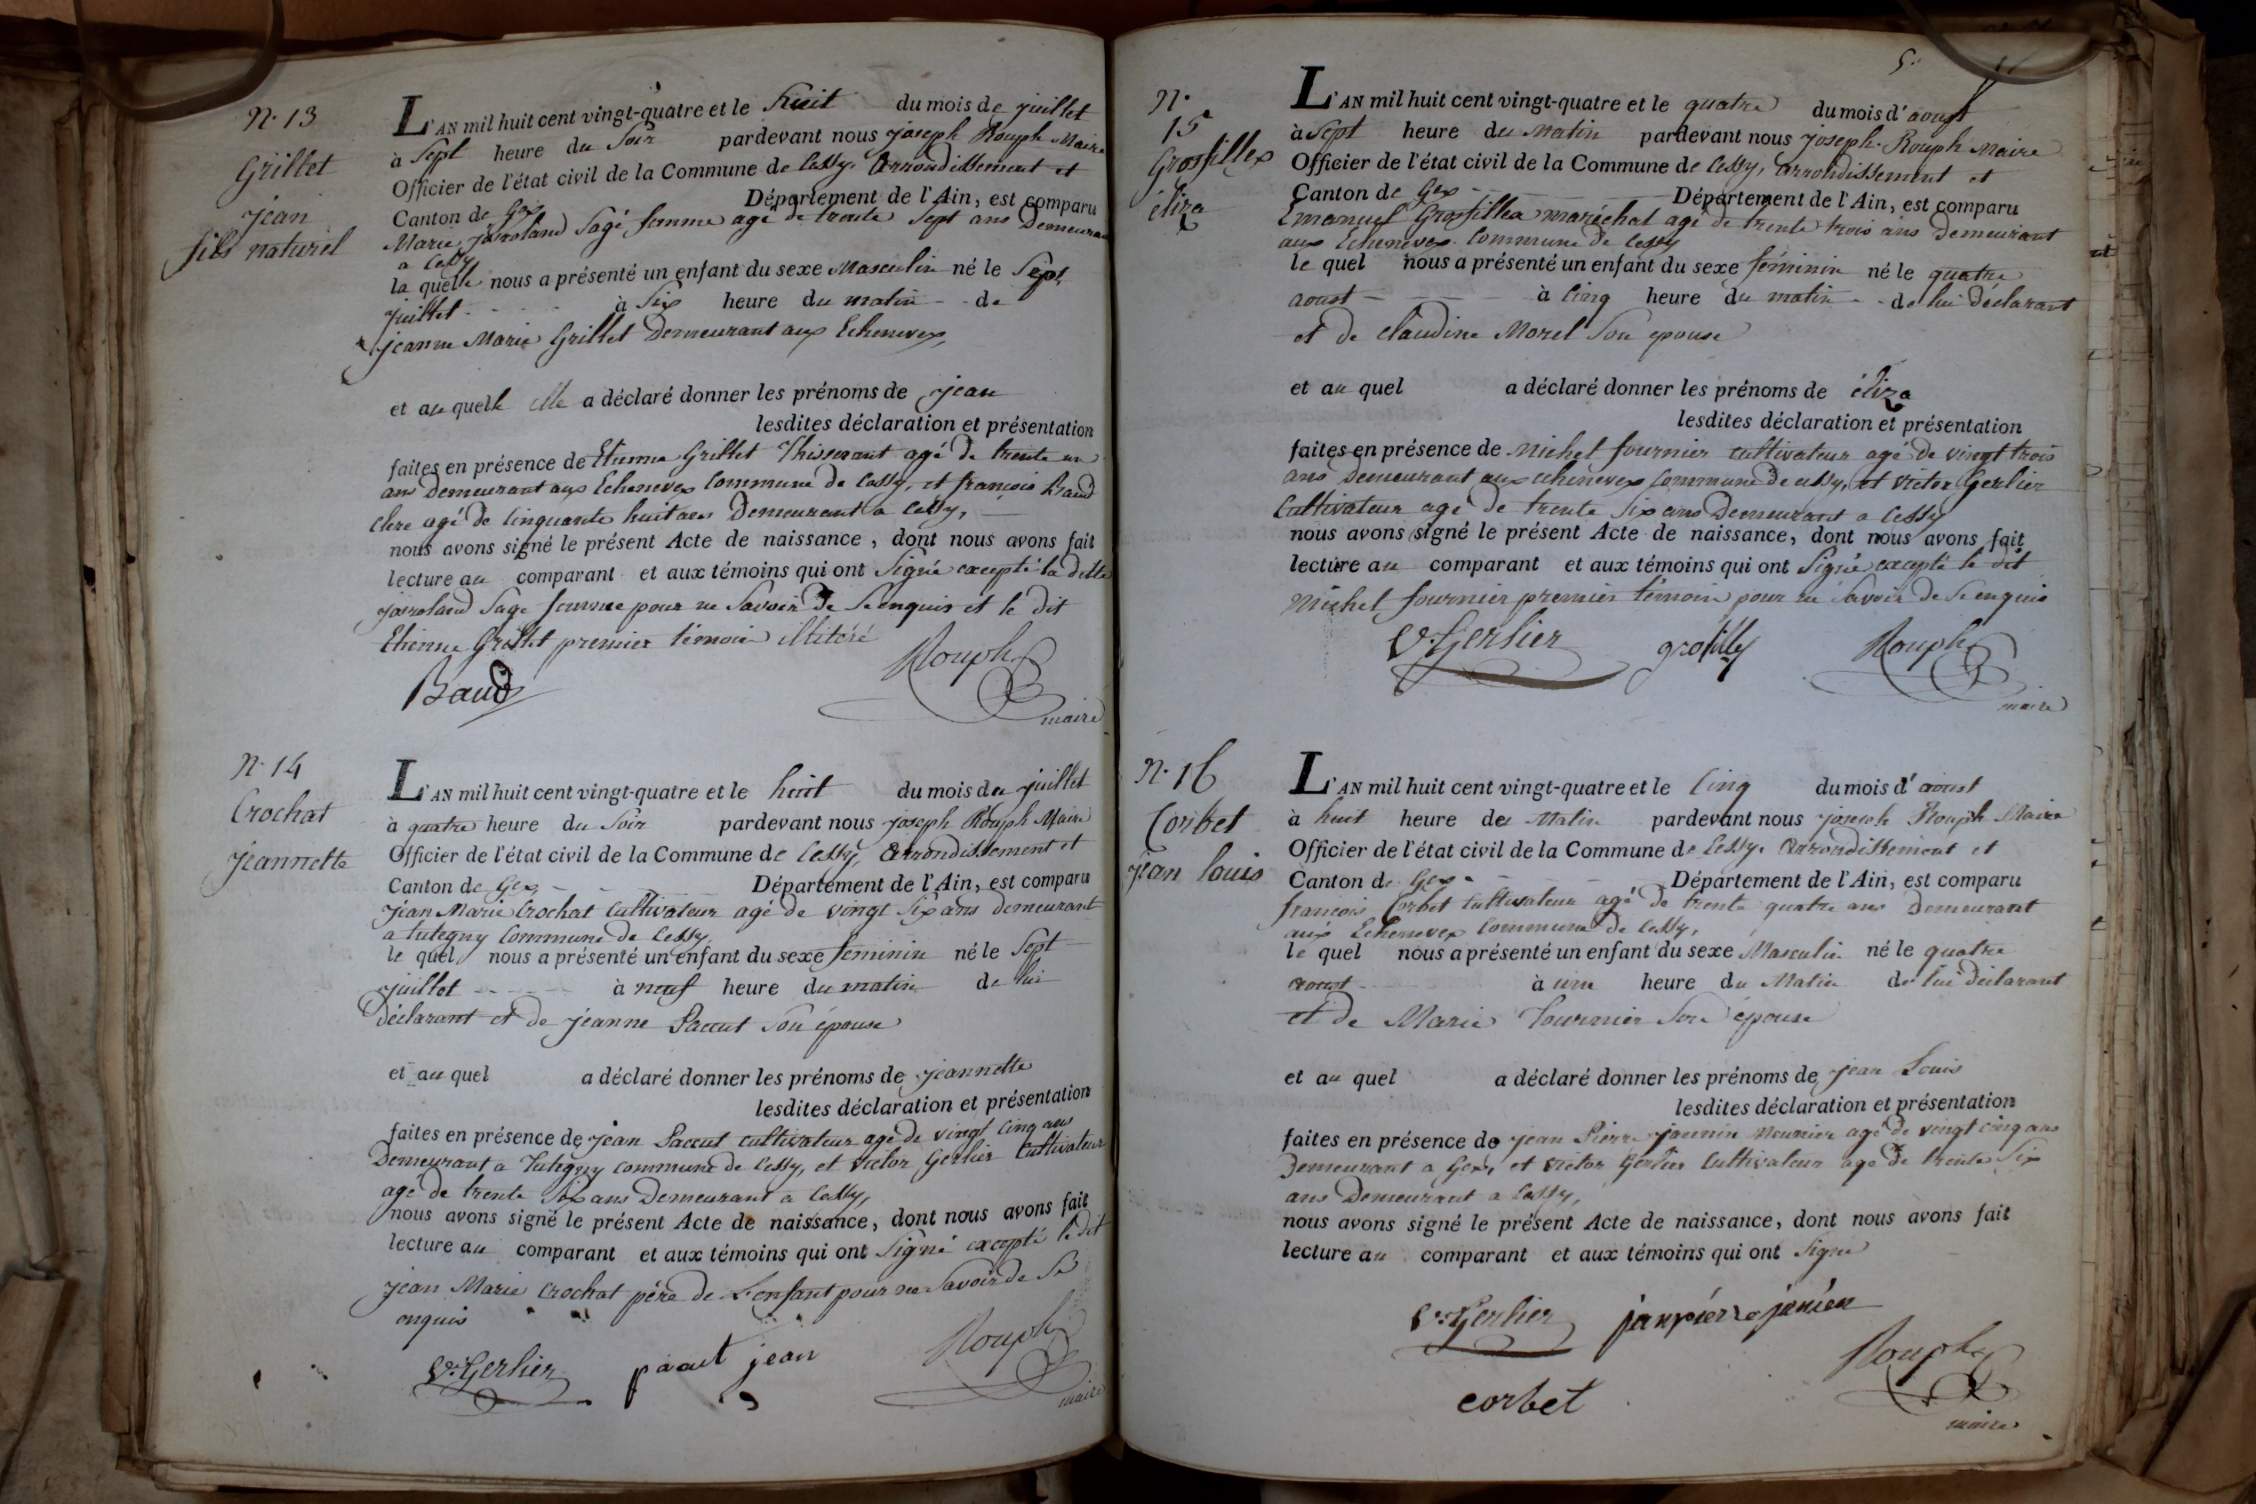 N. 13
Grillet
Jean
fils naturel
L'AN mil huit cent vingt-quatre et le huit du mois de juillet
à Sept heure du Soir pardevant nous joseph Rouph Maire
Officier de l'état civil de la Commune de Cessy, Arrondissement et
Canton de Gex Département de l'Ain, est comparu
Marie Sage femme agé de trente Sept ans Demeurant
a Cessy
la quelle nous a présenté un enfant du sexe Masculin né le Sept
juillet à Six heure du matin de
jeanne Marie Grillet Demeurant aux Echenevex,
et au quelle elle a déclaré donner les prénoms de jean
lesdites déclaration et présentation
faites en présence de Etienne Grillet Thisserant agé de trente un
ans Demeurant aux Echenevex Commune de Cessy, et françois Baud
clerc agé de Cinquante huit ans Demeurant a Cessy,
nous avons signé le présent Acte de naissance, dont nous avons fait
lecture au comparant et aux témoins qui ont Signé excepté la ditte
Sage femme pour ne Savoir De Se enquis et le dit
Etienne Grillet premier témoin illitéré
Baud
Rouph
maire
N. 14
Crochat
jeannette
L'AN mil huit cent vingt-quatre et le huit du mois de juillet
à quatre heure du Soir pardevant nous joseph Rouph Maire
Officier de l'état civil de la Commune de Cessy, Arrondissement et
Canton de Gex Département de l'Ain, est comparu
jean Marie Crochat Cultivateur agé de vingt Six ans demeurant
a tutegny Commune de Cessy
le quel nous a présenté un enfant du sexe feminin né le Sept
juillet à neuf heure du matin de lui
déclarant et de jeanne Paccut Son épouse
et au quel a déclaré donner les prénoms de jeannette
lesdites déclaration et présentation
faites en présence de jean Paccut cultivateur agé de vingt Cinq ans
Demeurant a Tutegny commune de Cessy, et victor Gerlier Cultivateur
agé de trente Six ans Demeurant a Cessy,
nous avons signé le présent Acte de naissance, dont nous avons fait
lecture au comparant et aux témoins qui ont Signé excepté le dit
jean Marie Crochat père de L'enfant pour ne Savoir de Se
enquis
V. Gerlier
jean
Rouph
maire
5.
N.
15
Grosfillex
éliza
L'AN mil huit cent vingt-quatre et le quatre du mois d'aoust
à Sept heure du Matin pardevant nous joseph Rouph Maire
Officier de l'état civil de la Commune de Cessy, arrondissement et
Canton de Gex Département de l'Ain, est comparu
Emanuel Grosfillex maréchal agé de trente trois ans Demeurant
aux Echenevex Commune de Cessy
le quel nous a présenté un enfant du sexe féminin né le quatre
aoust à Cinq heure du matin de lui Déclarant
et de Claudine Morel Son epouse
et au quel a déclaré donner les prénoms de éliza
lesdites déclaration et présentation
faites en présence de Michel fournier cultivateur agé de vingt trois
ans Demeurant aux echenevex Commune de Cessy, et victor Gerlier
Cultivateur agé de trente Six ans Demeurant a Cessy
nous avons signé le présent Acte de naissance, dont nous avons fait
lecture au comparant et aux témoins qui ont Signé excepté le dit
Michel fournier premier témoin pour ne Savoir de Se enquis
V. Gerlier
Rouph
maire
N. 16
Corbet
jean Louis
L'AN mil huit cent vingt-quatre et le Cinq du mois d'aoust
à huit heure du Matin pardevant nous joseph Rouph Maire
Officier de l'état civil de la Commune de Cessy. Arrondissement et
Canton de Gex Département de l'Ain, est comparu
françois Corbet Cultivateur agé de trente quatre ans Demeurant
aux Echenevex Commune de Cessy,
le quel nous a présenté un enfant du sexe Masculin né le quatre
aoust à une heure du Matin de lui déclarant
et de Marie fournier Son épouse
et au quel a déclaré donner les prénoms de jean Louis
lesdites déclaration et présentation
faites en présence de jean Pierre Meunier agé de vingt cinq ans
Demeurant a Gex, et victor Gerlier Cultivateur agé de trente Six
ans Demeurant a Cessy,
nous avons signé le présent Acte de naissance, dont nous avons fait
lecture au comparant et aux témoins qui ont Signé
V. Gerlier
Rouph
corbet
maire